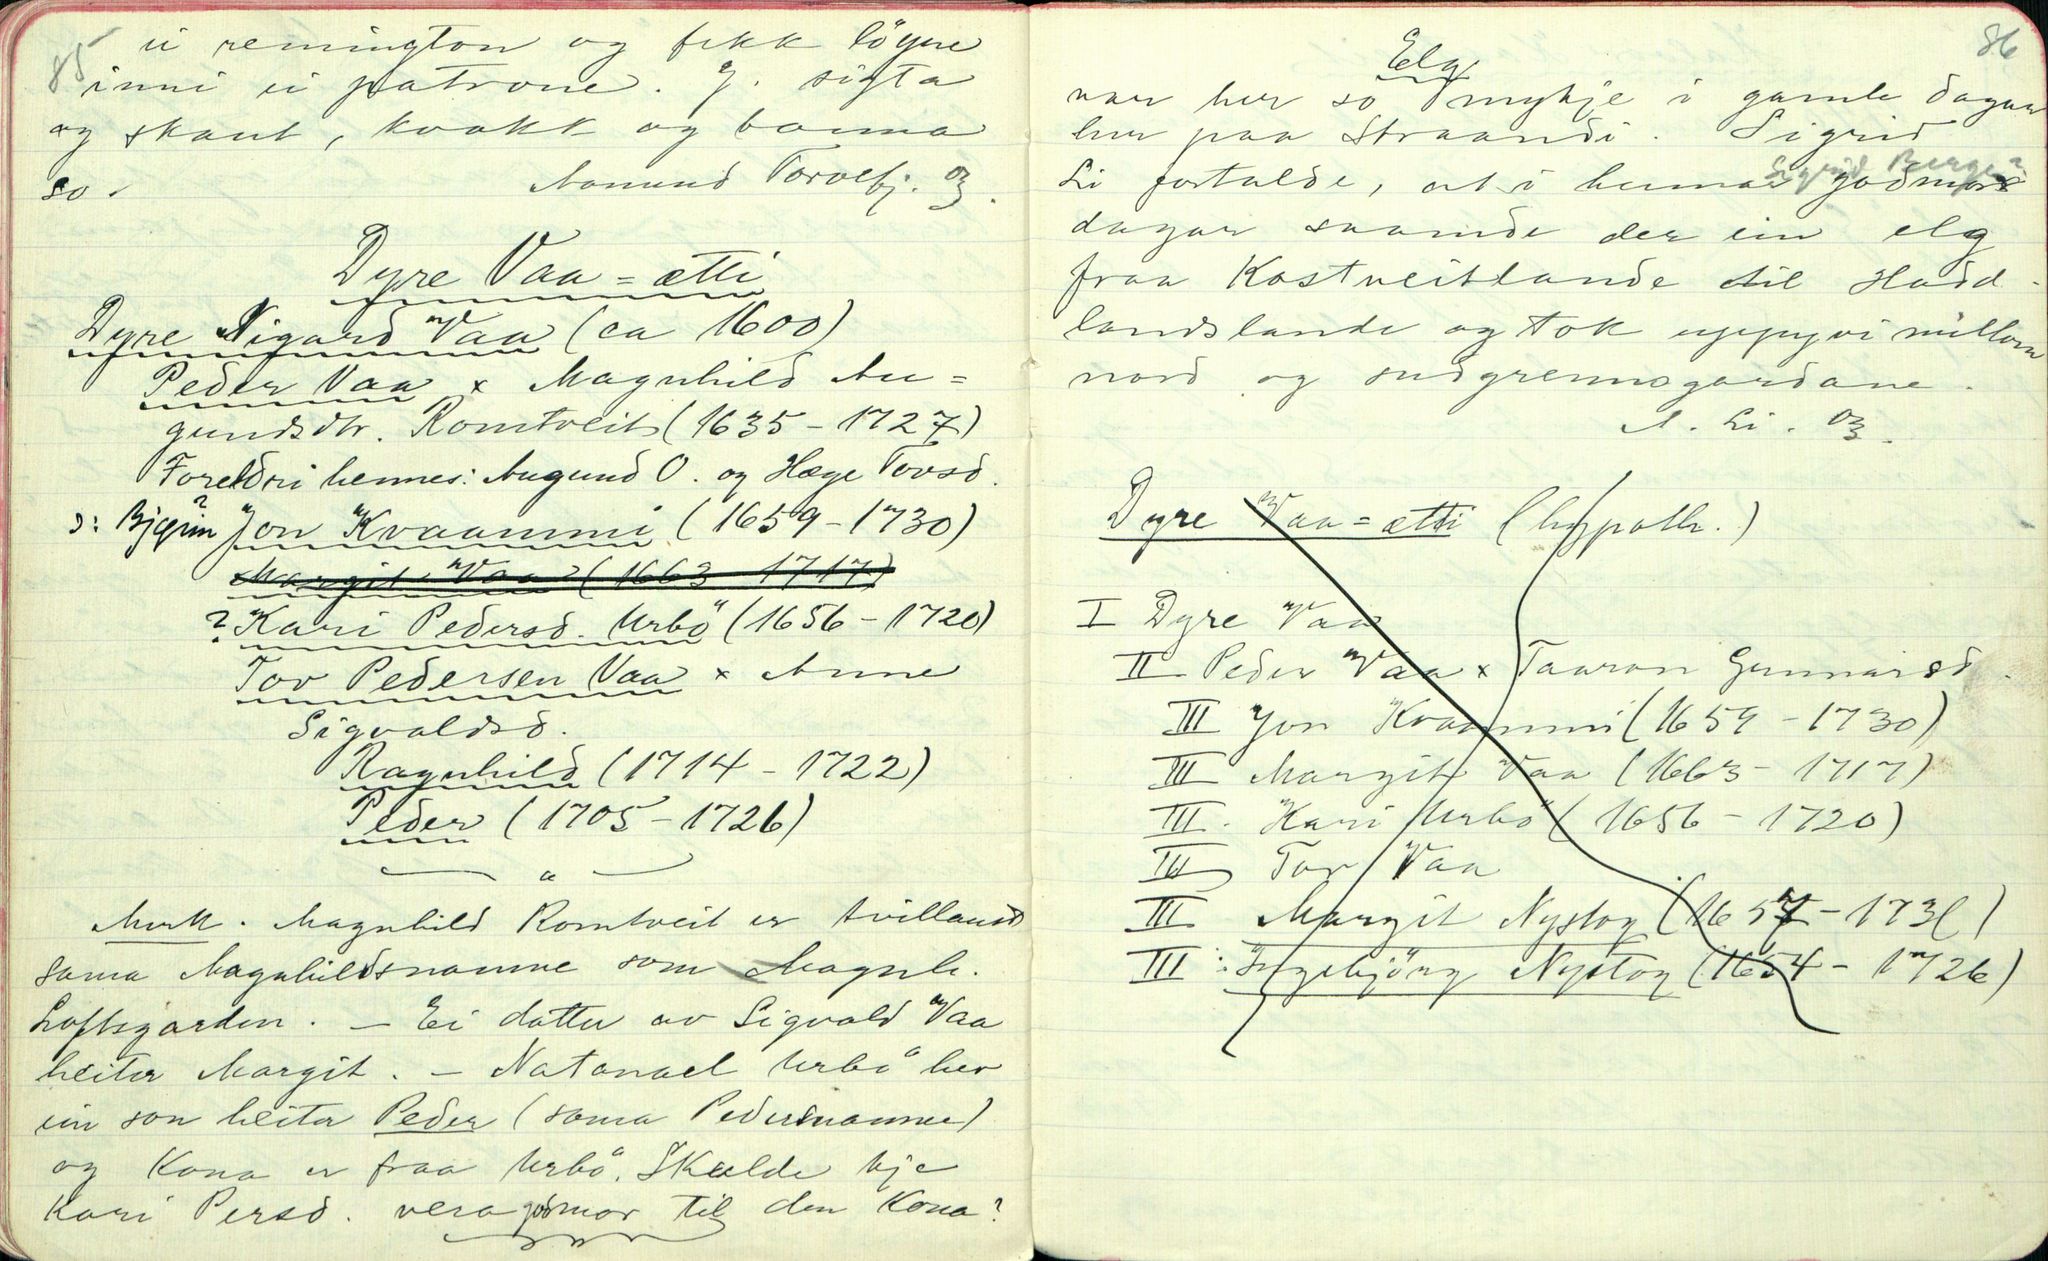 85
ei remington og fekk löyne
inni ei patrone. J. sigta
og skaut, kvakk og banna
so.
Aamund Torvefj. 03.
Dyre Vaa=ætti
Dyre Nigard Vaa (ca 1600)
Peder Vaa x Magnhild Au=
gundsdtr. Romtveit (1635 - 1727)
Foreldri hennes: Augund O. og Hæge Tovsd.
?
ɔ: Bjørn Jon Kvaammi (1659 - 1730)
Margit Vaa (1663 - 1717)
? Kari Pedersd. Urbö (1656 - 1720)
Tov Pedersen Vaa x Anne
Sigvaldsd.
Ragnhild (1714 - 1722)
Peder (1705 - 1726)
Merk. Magnhild Romtveit er tvillaust
sama Magnhildsnamne som Magnh.
Loftsgarden. - Ei dotter av Sigvald Vaa
heiter Margit. - Natanael Urbö hev
ein son heiter Peder (sama Pedersnamne)
og Kona er fraa Urbö. Skulde kje
Kari Persd. vera godmor til den Kona?
86
Elg
var her so mykje i gamle dagar
her paa Straandi. Sigrid
Sigrid Berge?
Li fortalde, at i hennar godmors
dagar saamde der ein elg
fraa Kostveitlande til Hadd-
landslande og tok uppyvi millom
nord og sudgrennsgardane.
A. Li. 03.
Dyre Vaa=ætti (hypoth.)
I Dyre Vaa
II Peder Vaa x Taaron Gunnarsd.
III Jon Kvaammi (1659 - 1730)
III Margit Vaa (1663 - 1717)
III Kari Urbö (1656 - 1720)
III Tov Vaa
III Margit Nystog (1657 - 1731)
III Ingebjörg Nystog (1654 - 1726)